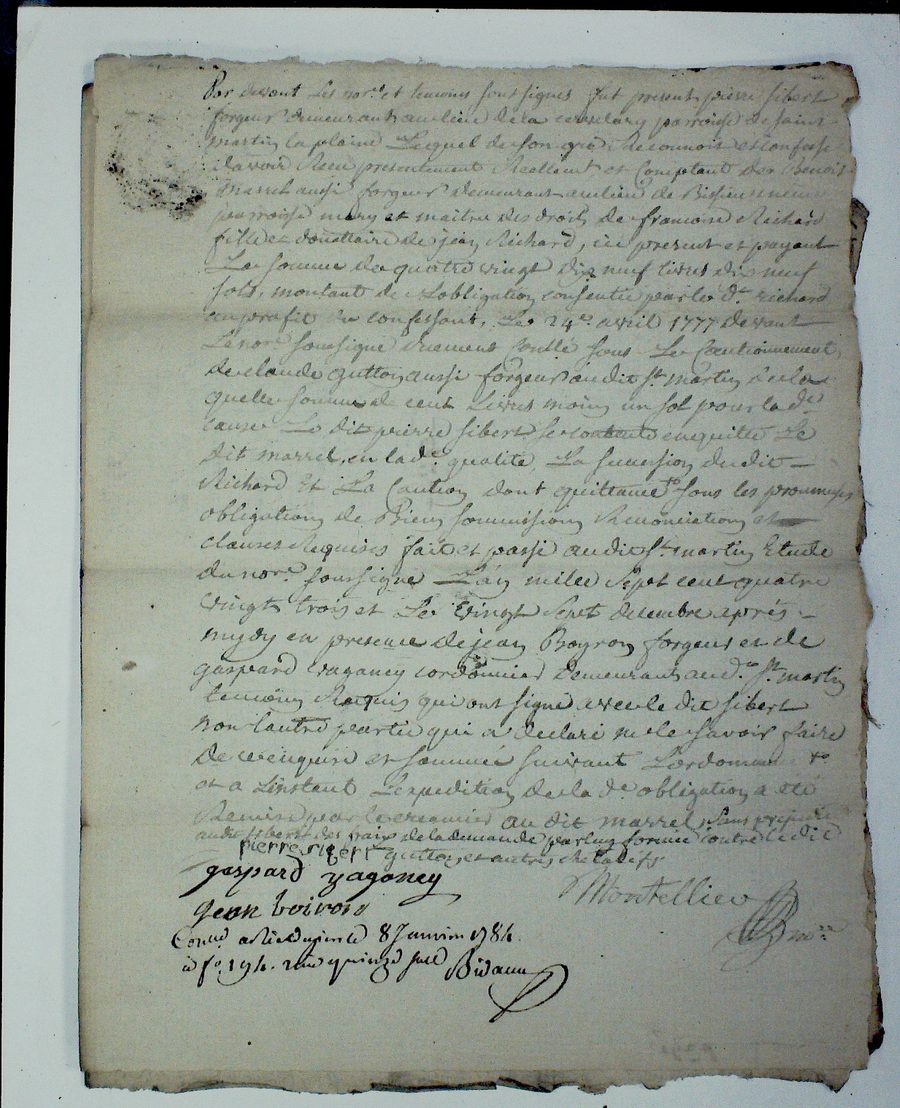 Par devant les nore. et temoins soussignes fut present pierre sibert
forgeur demeurant au lieu de la paroisse de saint
martin la plaine Lequel de son gré Reconnoit et confesse
davoir Receu presentement Reellement et Comptant de Benoit
marrel aussi forgeur demeurant au lieu de
parroisse mary et maitre des droits de francoise Richard
fille et donattaire de jean Richard, ice present et payant
La somme de quatre vingt dix neuf livres dix neuf
sols, montant de Lobligation consentie par led. richard
au profit du confessant, Le 24e. avril 1777 devant
Le nore soussigné duement sous Le Cautionnement
de claude guttoy aussi forgeur audit St. martin de la
quelle somme de cent Livres moins un sol pour lade
cause Le dit pierre sibert se contente en quitte Le
dit marrel, en lade. qualité, La succession dudit
Richard Et La Caution dont quittance sous les promesses
obligations de Biens soumissions Renonciations et
clauses Requises fait et passé audit St. martin Etude
du nore. soussigné L'an mille sept cent quatre
vingt trois et Le vingt sept decembre après
midy en presence de jean Boyron forgeur et de
gaspard vaganey cordonnier demeurants aud. St. martin
temoins Requis qui ont signé avec le dit sibert
non l'autre partie qui a declaré ne le savoir faire
de ce enquise et sommée suivant L'ordonnance
et a Linstant L'expedition de lade. obligation a été
Remise par le creancier au dit marrel, sans prejudice
audit sibert des frais de la demande par luy formée contre ledit
guttoy et autres relatifs
pierre sibert
gaspard vaganey
jean boiron
Montellier
nore
Conllé a le 8 Janvier 1784.
a fo. 194. Reçu quinze sols Bidaux